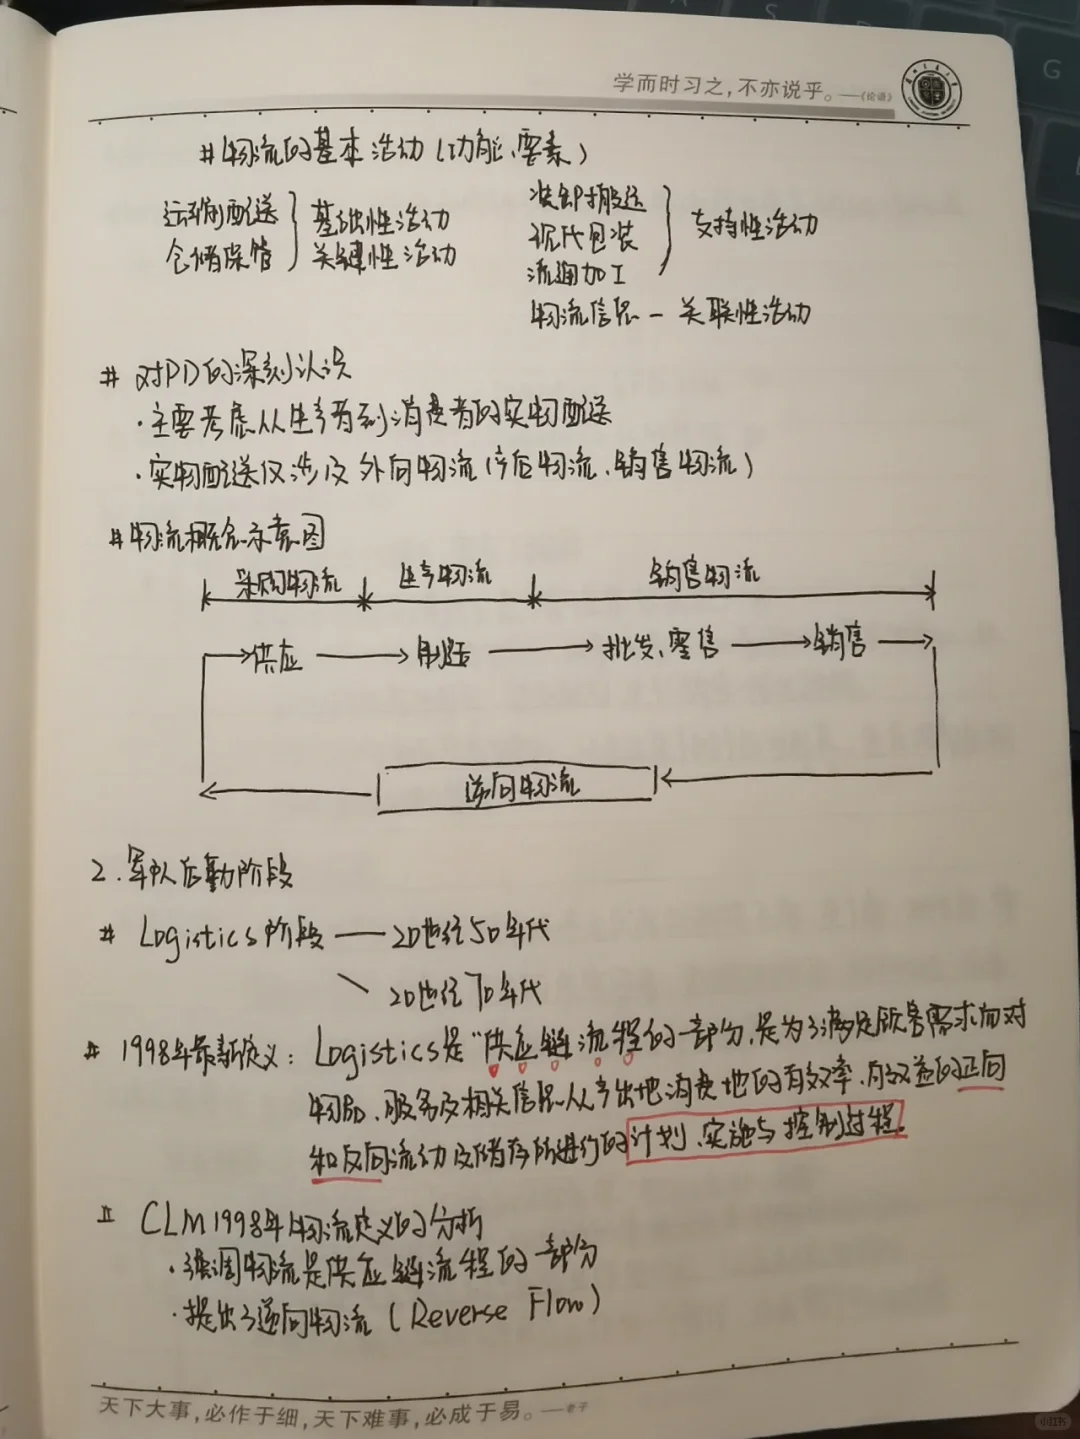 学而时习之，不亦说乎。——《论语》
# 物流的基本活动（功能、要素）
运输配送
仓储保管
基础性活动
关键性活动
装卸搬运
现代包装
流通加工
支持性活动
物流信息 — 关联性活动
# 对PD的深刻认识
· 主要考虑从生产者到消费者的实物配送
· 实物配送仅涉及外向物流（产后物流、销售物流）
# 物流概念示意图
采购物流 生产物流 销售物流
供应 制造 批发、零售 销售
逆向物流
2. 军队后勤阶段
# Logistics阶段 —— 20世纪50年代
20世纪70年代
# 1998年最新定义：Logistics是“供应链流程的一部分，是为了满足顾客需求而对
物品、服务及相关信息从产出地消费地的有效率、有效益的正向
和反向流动及储存所进行的计划、实施与控制过程。
# CLM1998年物流定义的分析
· 强调物流是供应链流程的一部分
· 提出了逆向物流（Reverse Flow）
天下大事，必作于细，天下难事，必成于易。——老子